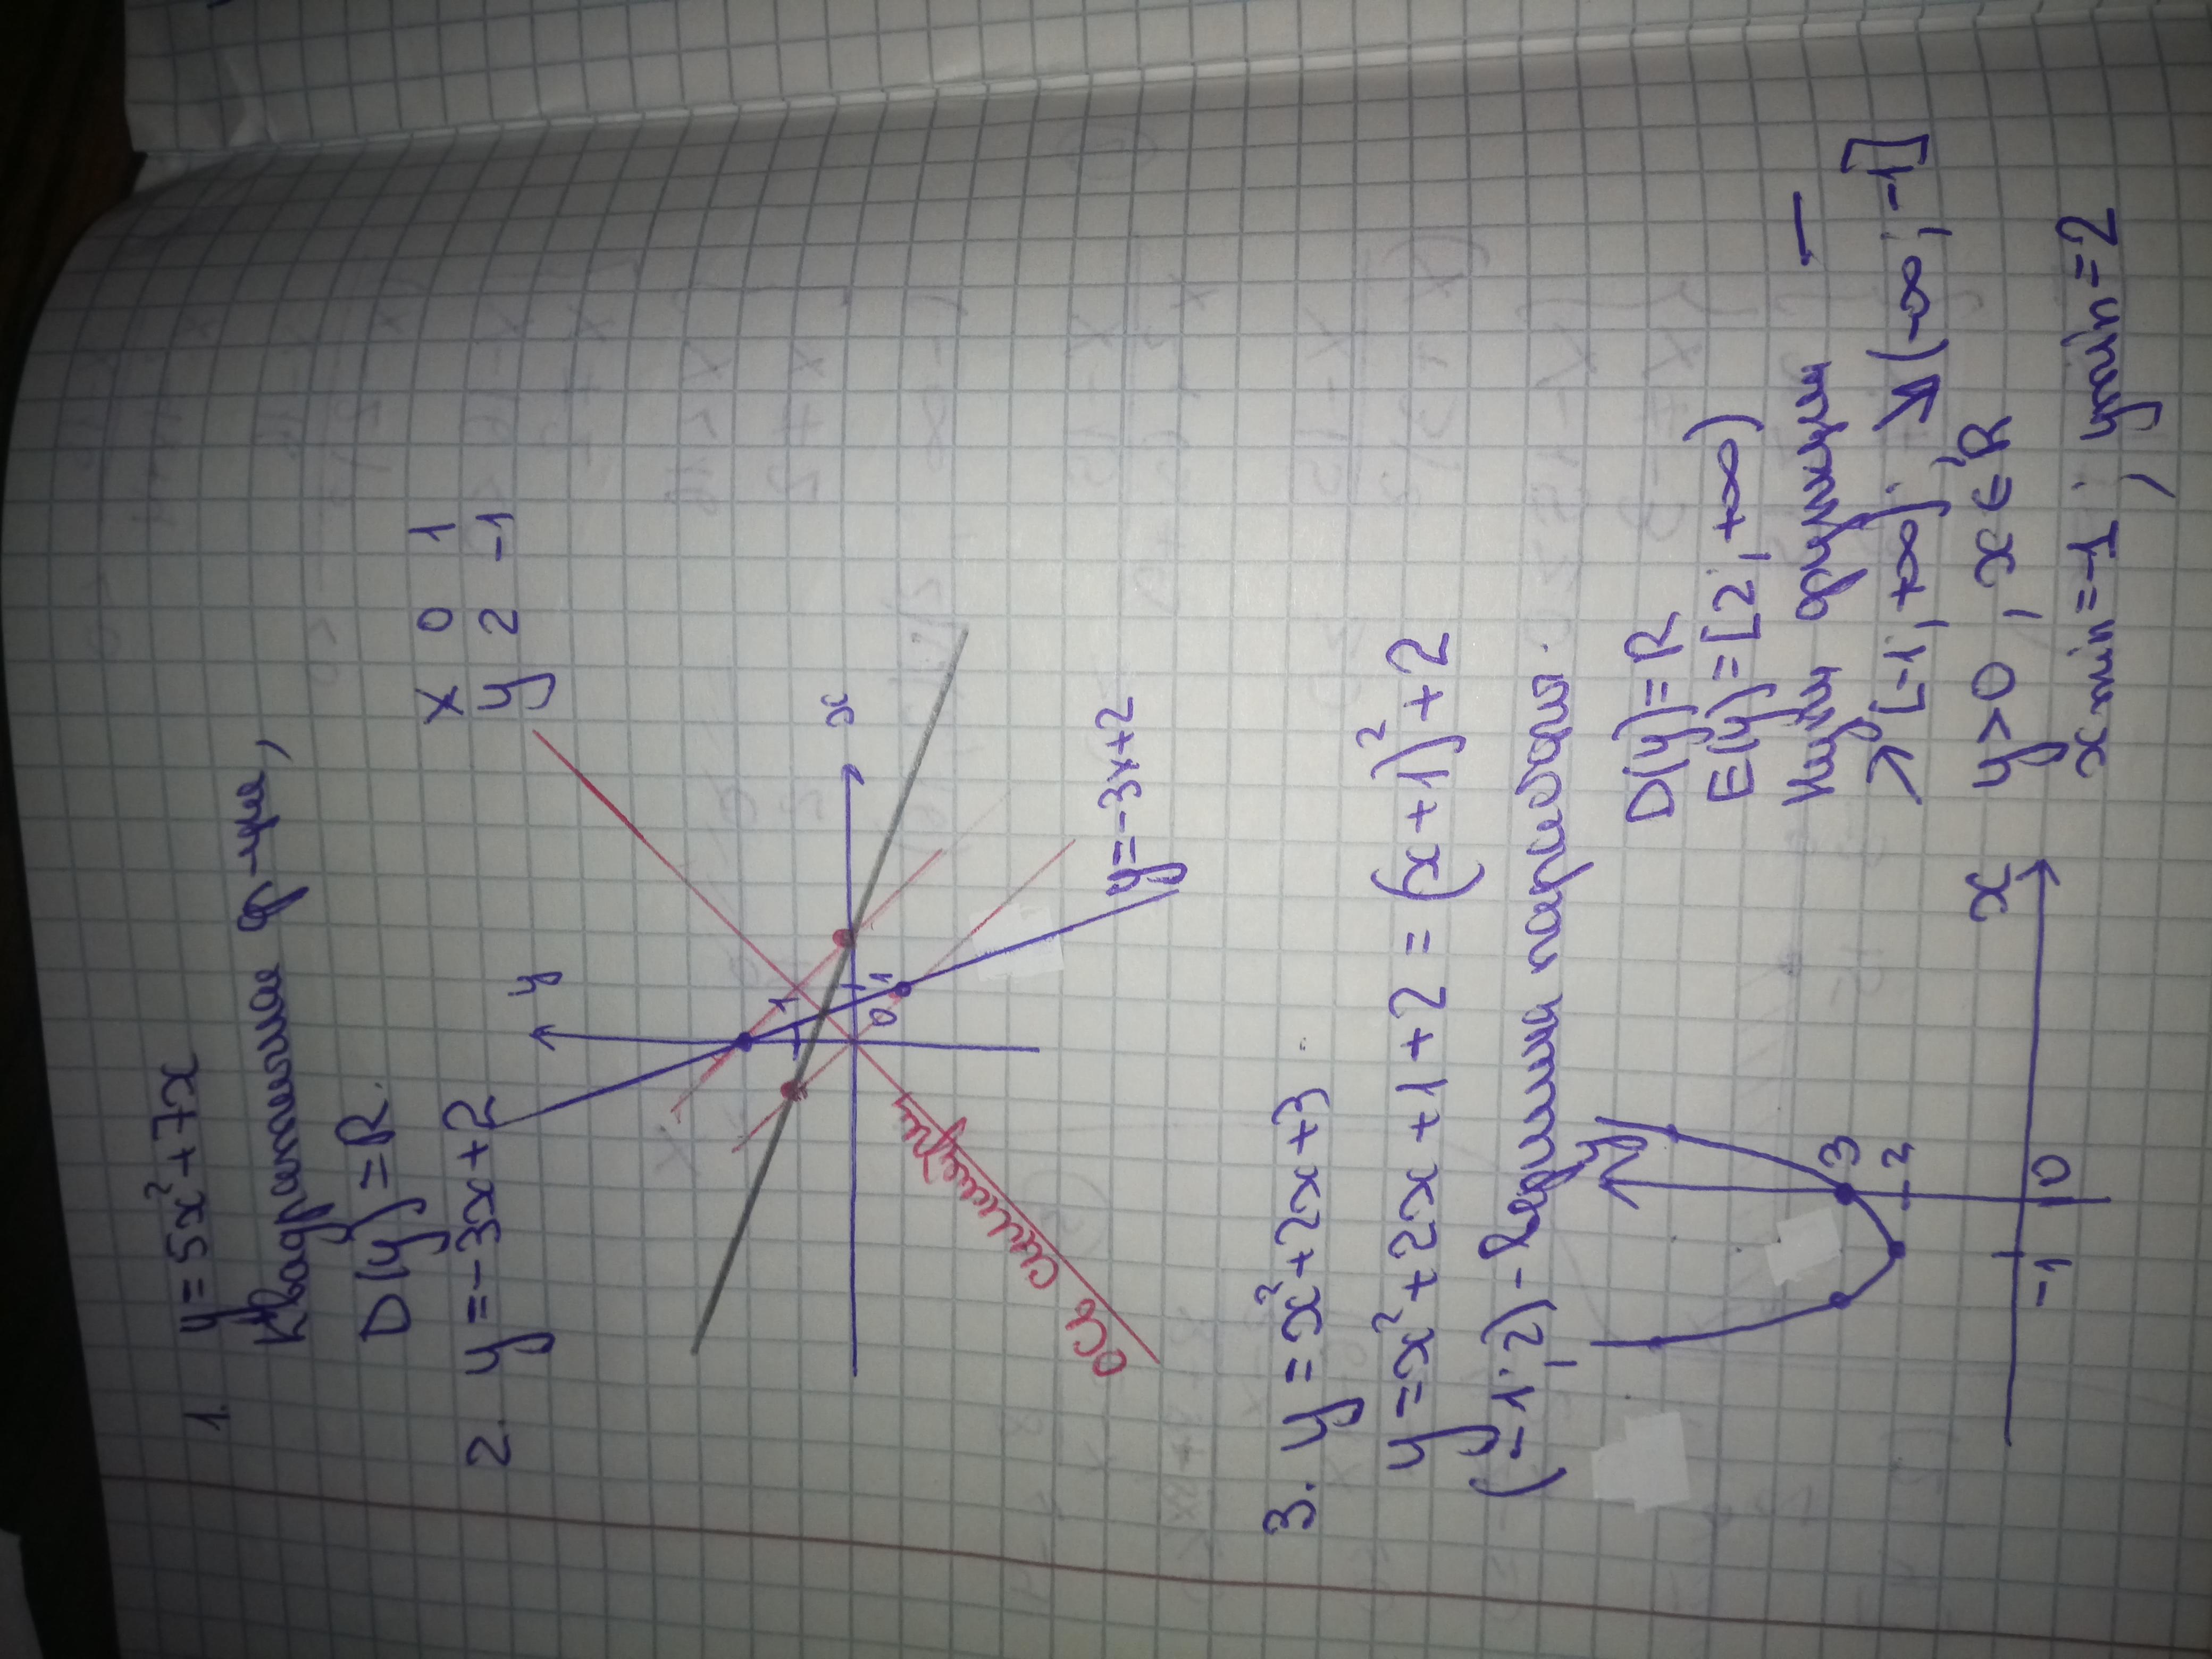 1. y = 5x² + 7x
Квадратичная ф-ция,
D(y) = R.
2. y = -3x + 2
x 0 1
y 2 -1
y
x
1
0 1
y = -3x + 2
ось симметрии
3. y = x² + 2x + 3
y = x² + 2x + 1 + 2 = (x + 1)² + 2
(-1; 2) - вершина параболы.
y
3
2
-1 0
x
D(y) = R
E(y) = [2; +∞)
Нули функции —
↗ [-1; +∞); ↘ (-∞; -1]
y > 0, x ∈ R
x min = -1; y min = 2